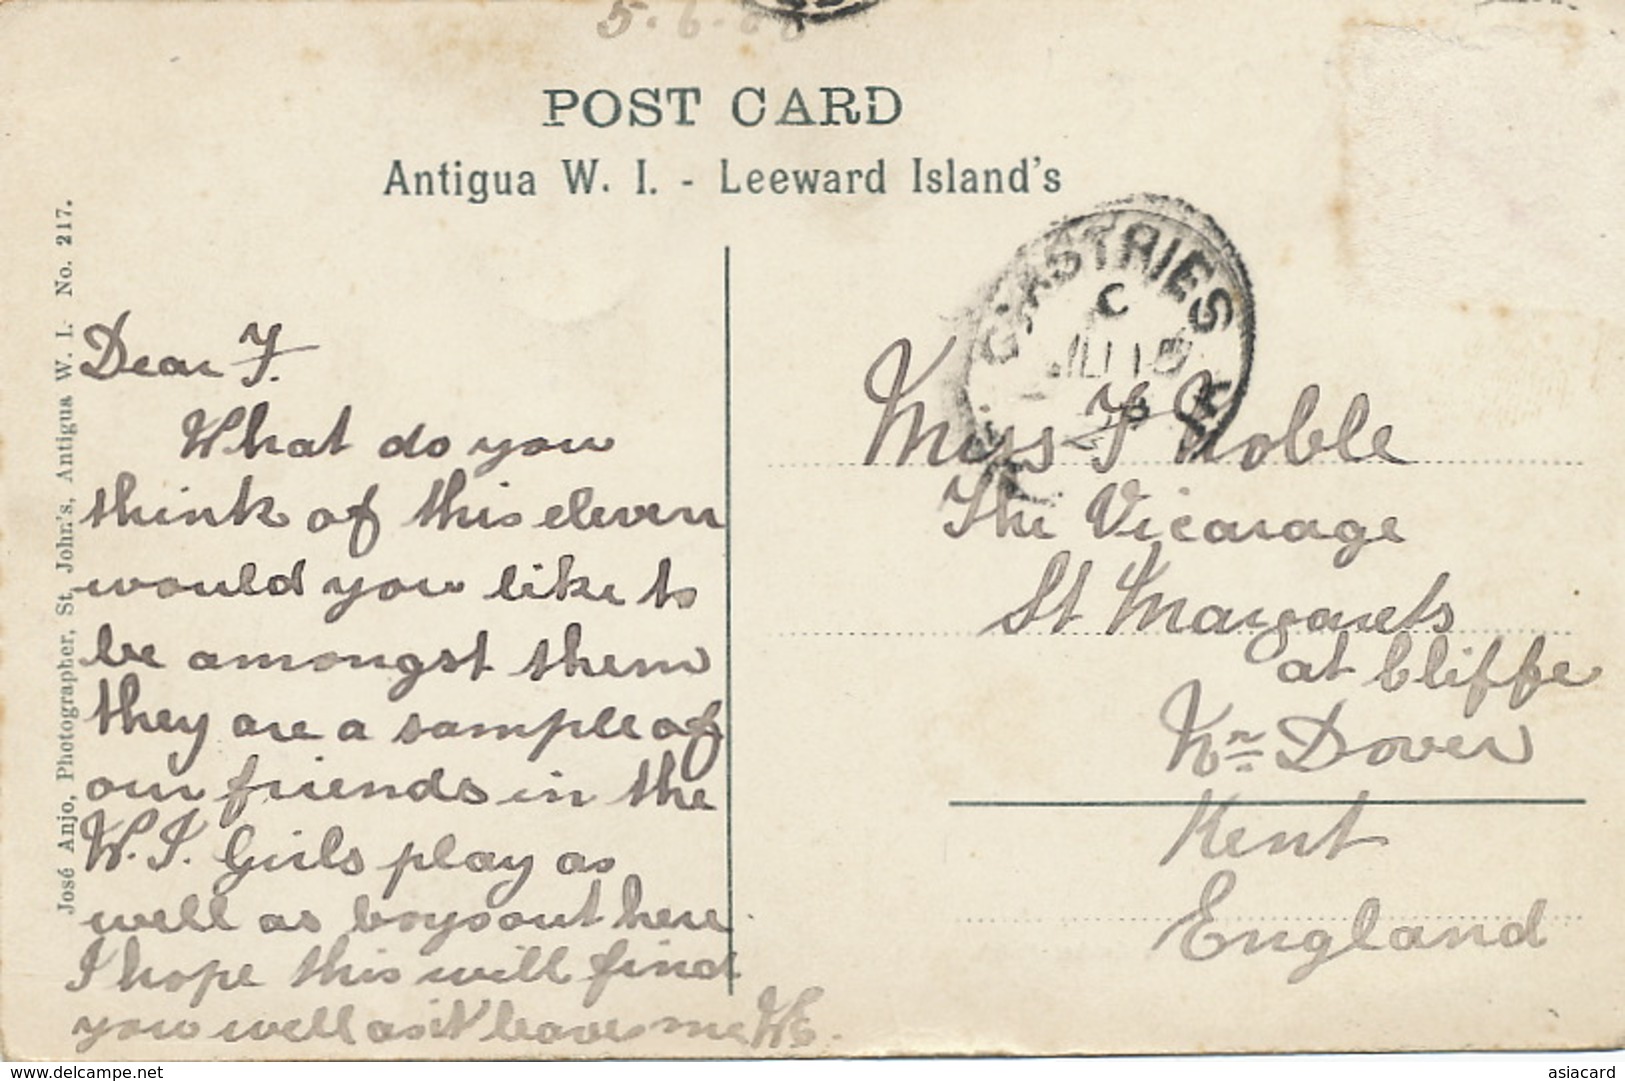 POST CARD
Antigua W. I. - Leeward Island's
José Anjo, Photographer, St. John's, Antigua W. I. No. 217.
CASTRIES
C
Dear F.
What do you
think of this eleven
would you like to
be amongst them
they are a sample of
our friends in the
W.I. Girls play as
well as boys out here
I hope this will find
you well as it leaves me WE.
Miss F Noble
The Vicarage
St Margarets
at Cliffe
Nr Dover
Kent
England
www.delcampe.net
asiacard